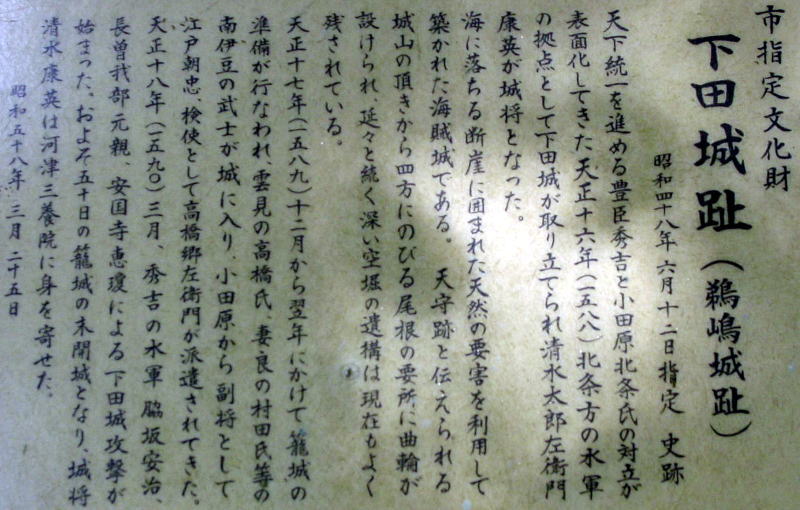 市指定文化財
下田城趾(鵜嶋城趾)
昭和四十八年 六月十二日指定 史跡
天下統一を進める豊臣秀吉と小田原北条氏の対立が
表面化してきた天正十六年(一五八八)北条方の水軍
の拠点として下田城が取り立てられ清水太郎左衛門
康英が城将となった。
海に落ちる断崖に囲まれた天然の要害を利用して
築かれた海賊城である。 天守跡と伝えられる
城山の頂きから四方にのびる尾根の要所に曲輪が
設けられ、延々と続く深い空堀の遺構は現在もよく
残されている。
天正十七年(一五八九)十二月から翌年にかけて籠城の
準備が行なわれ、雲見の高橋氏、妻良の村田氏等の
南伊豆の武士が城に入り、小田原から副将として
江戸朝忠、検使として高橋郷左衛門が派遣されてきた。
天正十八年(一五九〇)三月、秀吉の水軍 脇坂安治、
長曽我部元親、安国寺恵瓊による下田城攻撃が
始まった、およそ五十日の籠城の末開城となり、城将
清水康英は河津三養院に身を寄せた、
昭和五十八年 三月 二十五日